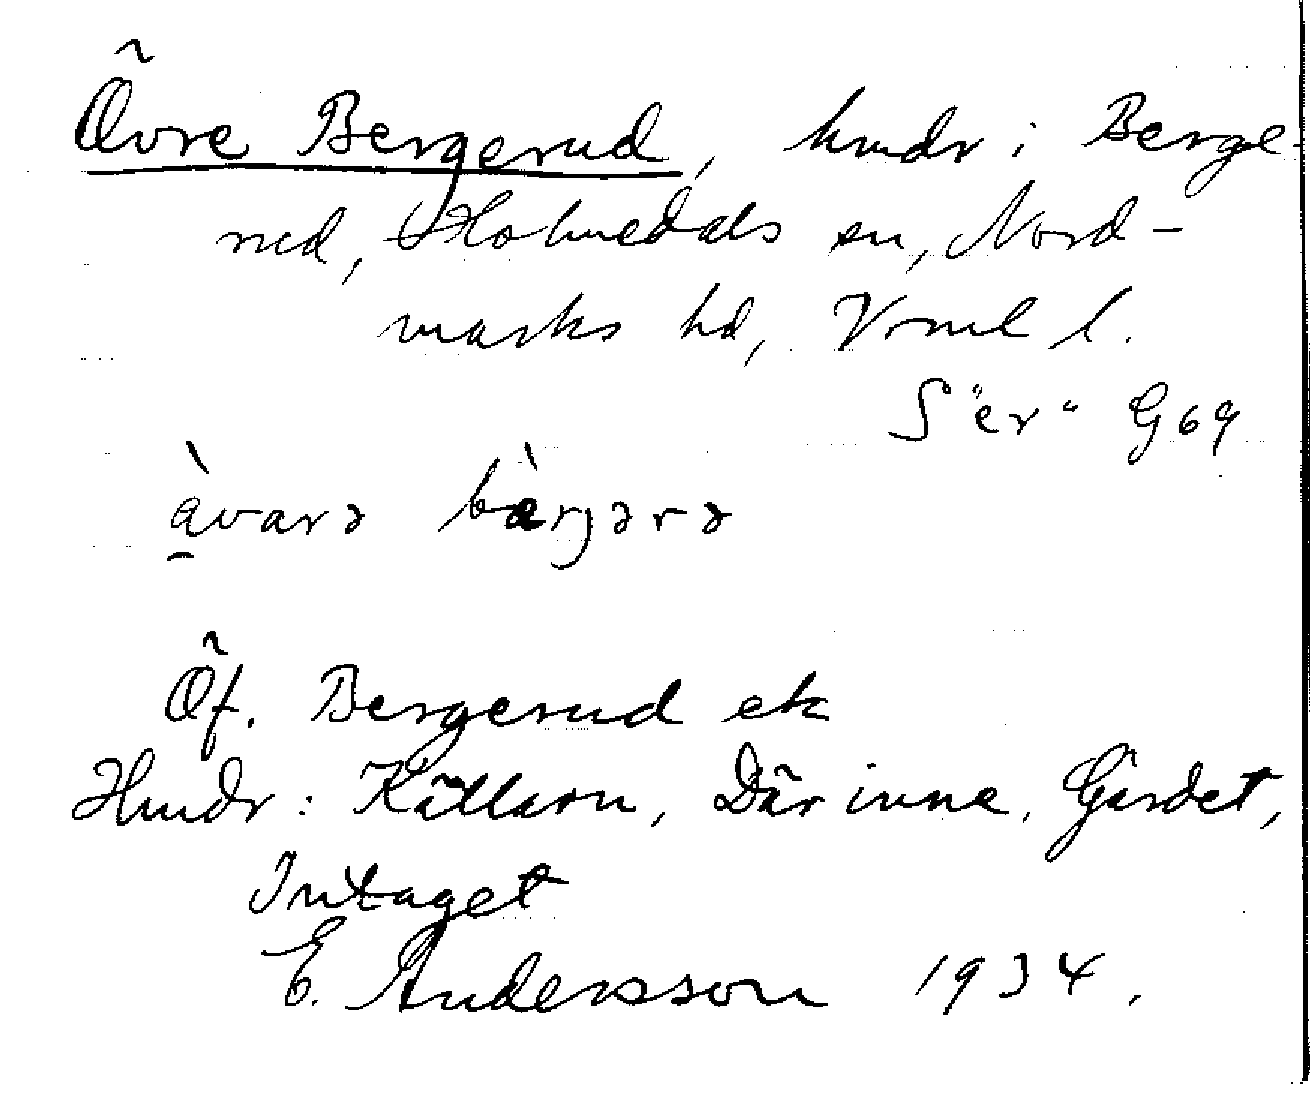 Övre Bergerud, hmdr i Berge-
rud, Holmedals sn, Nord-
marks hd, Vrml l.
S "er" G 69
àvarə bæ̀rjərə
Öf. Bergerud ek
Hmdr: Källarn, Där inne, Gärdet,
Intaget
E. Andersson 1934.